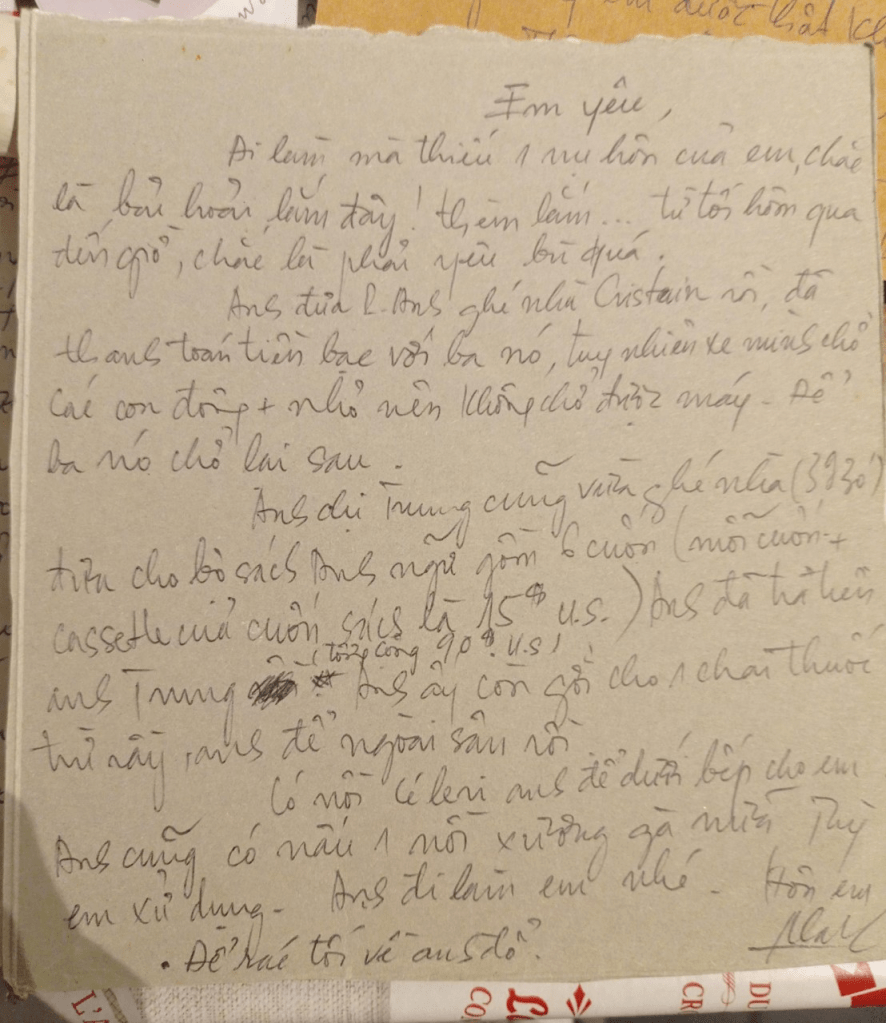 được thật
Em yêu,
Đi làm, mà thiếu 1 nụ hôn của em, chắc
là buồn lắm đấy! thèm lắm... từ tối hôm qua
đến giờ, chắc là phải yêu bù quá.
Anh đưa R. Anh ghé nhà Cristain rồi, đã
thanh toán tiền bạc với ba nó, tuy nhiên xe mình chở
các con đông + nhỏ nên không chở được máy - Để
ba nó chở lại sau.
Anh chị Trung cũng vừa ghé nhà (3g30')
đưa cho bộ sách Anh ngữ gồm 6 cuốn (mỗi cuốn +
cassette của cuốn sách là 15$ U.S.) Anh đã trả tiền
(tổng cộng 90$ U.S)
anh Trung Anh ấy còn gởi cho 1 chai thuốc
trừ rầy, anh để ngoài sân rồi.
Có nồi céleri anh để dưới bếp cho em
Anh cũng có nấu 1 nồi xương gà nữa Tùy
em xử dụng - Anh đi làm em nhé - Hôn em
. Để rác tối về anh đổ.
L'A
CO
CR
DU